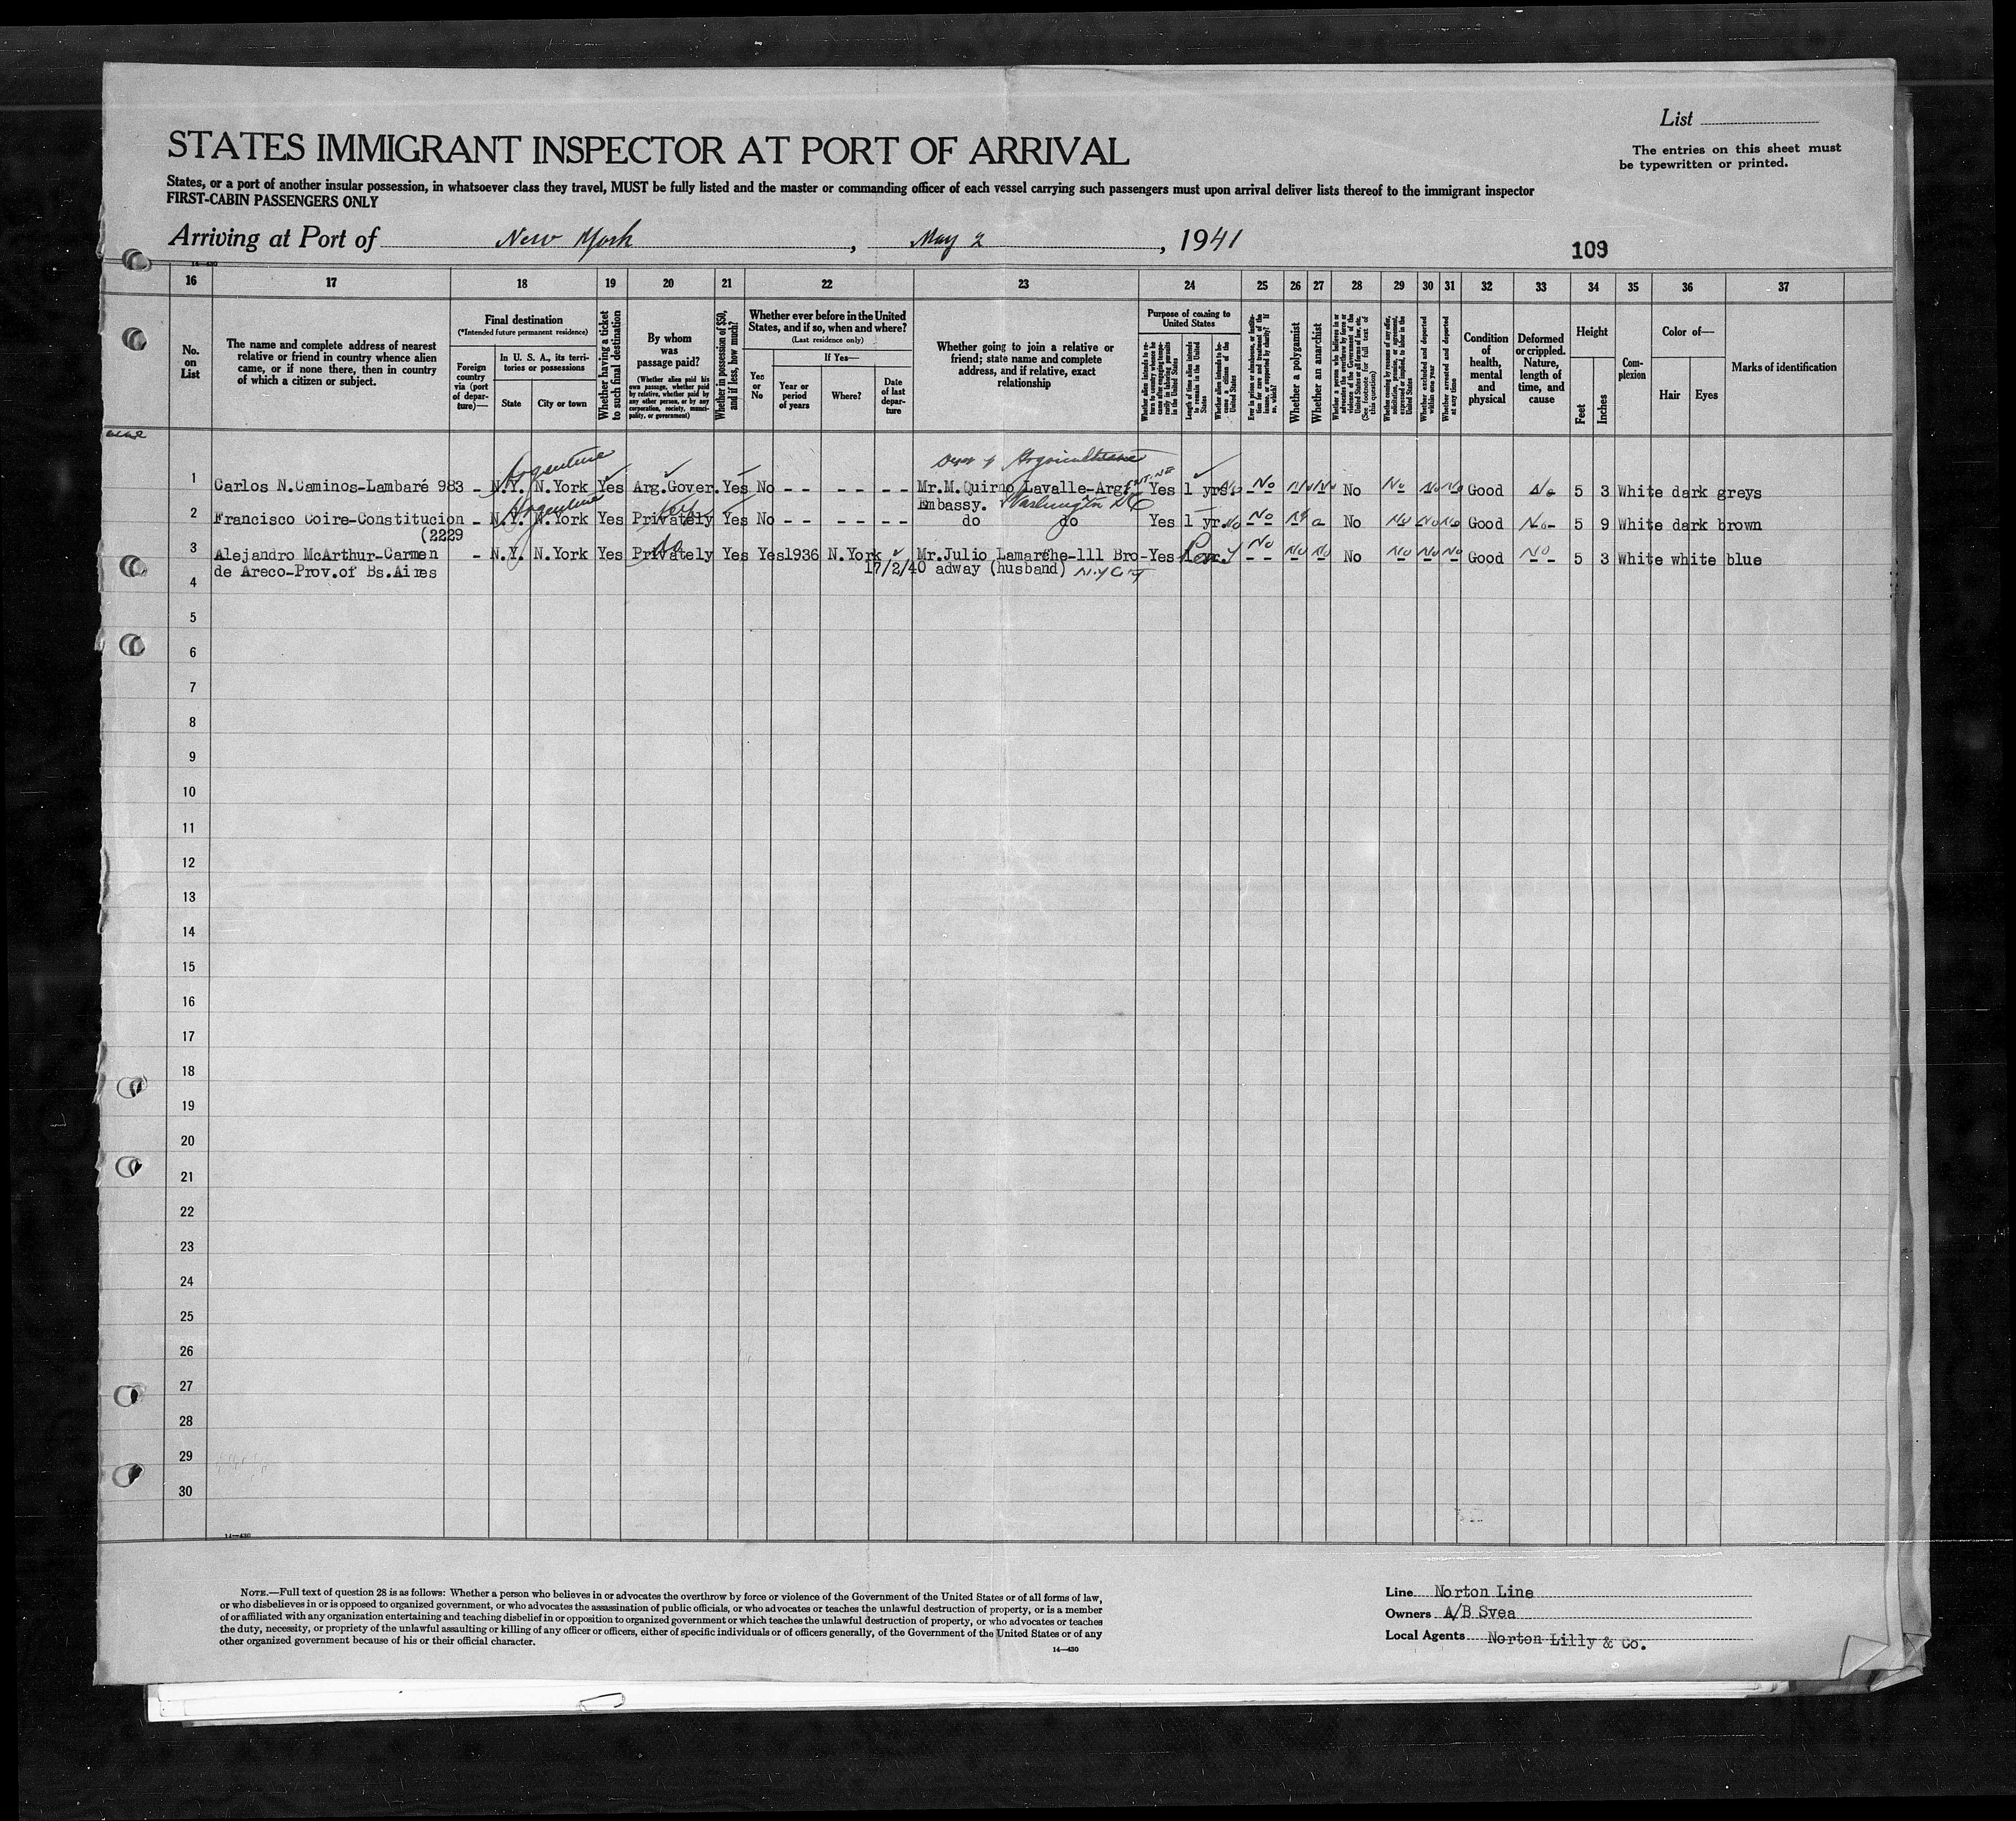 List
The entries on this sheet must
be typewritten or printed.
STATES IMMIGRANT INSPECTOR AT PORT OF ARRIVAL
States, or a port of another insular possession, in whatsoever class they travel, MUST be fully listed and the master or commanding officer of each vessel carrying such passengers must upon arrival deliver lists thereof to the immigrant inspector
FIRST-CABIN PASSENGERS ONLY
Arriving at Port of New York, May 2, 1941
109
14—430
16 17 18 19 20 21 22 23 24 25 26 27 28 29 30 31 32 33 34 35 36 37
No. on List
The name and complete address of nearest relative or friend in country whence alien came, or if none there, then in country of which a citizen or subject.
Final destination
(*Intended future permanent residence)
Foreign country via (port of departure)—
In U. S. A., its territories or possessions
State
City or town
Whether having a ticket to such final destination
By whom was passage paid?
(Whether alien paid his own passage, whether paid by relative, whether paid by any other person, or by any corporation, society, municipality, or government)
Whether in possession of $50, and if less, how much?
Whether ever before in the United States, and if so, when and where?
(Last residence only)
Yes or No
If Yes—
Year or period of years
Where?
Date of last departure
Whether going to join a relative or friend; state name and complete address, and if relative, exact relationship
Purpose of coming to United States
Length of time alien intends to remain in the United States
Whether alien intends to become a citizen of the United States
Whether a polygamist
Whether an anarchist
(See footnote for full text of this question)
Whether excluded and deported within one year
Whether arrested and deported at any time
Condition of health, mental and physical
Deformed or crippled. Nature, length of time, and cause
Height
Feet
Inches
Complexion
Color of—
Hair
Eyes
Marks of identification
Argentine
Argoriculture
1 Carlos N.Caminos-Lambaré 983 - N.Y. N.York Yes Arg.Gover. Yes No -- -- -- Mr.M.Quirno Lavalle-Arg. Yes 1 yrs No No No No No No No No Good No 5 3 White dark greys
Embassy. Washington DC
Argentine
2 Francisco Coire-Constitucion - N.Y. N.York Yes Privately Yes No -- -- -- do do Yes 1 yr. No No No No No No No Good No 5 9 White dark brown
(2229
3 Alejandro McArthur-Carmen - N.Y. N.York Yes Privately Yes Yes 1936 N.York Mr.Julio Lamarche-111 Bro- Yes No No No No No No No Good No 5 3 White white blue
de Areco-Prov.of Bs.Aires 17/2/40 adway (husband) N.Y City
4
5
6
7
8
9
10
11
12
13
14
15
16
17
18
19
20
21
22
23
24
25
26
27
28
29
30
14—430
NOTE.—Full text of question 28 is as follows: Whether a person who believes in or advocates the overthrow by force or violence of the Government of the United States or of all forms of law,
or who disbelieves in or is opposed to organized government, or who advocates the assassination of public officials, or who advocates or teaches the unlawful destruction of property, or is a member
of or affiliated with any organization entertaining and teaching disbelief in or opposition to organized government or which teaches the unlawful destruction of property, or who advocates or teaches
the duty, necessity, or propriety of the unlawful assaulting or killing of any officer or officers, either of specific individuals or of officers generally, of the Government of the United States or of any
other organized government because of his or their official character.
14—430
Line Norton Line
Owners A/B Svea
Local Agents Norton Lilly & Co.